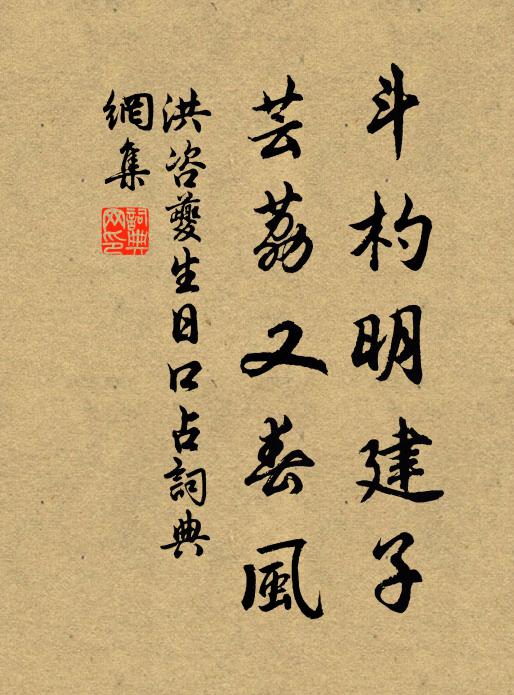 斗杓明建子
芸荔又春風
洪咨夔生日口占詞典
網集
詞典網印